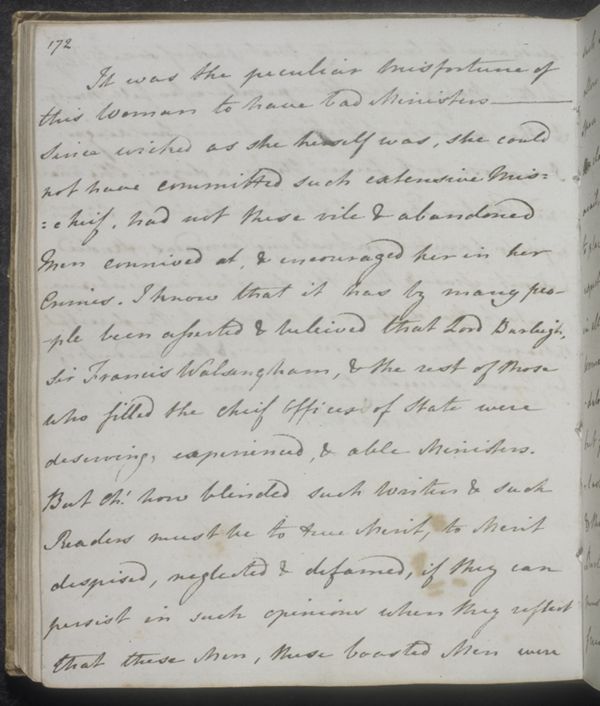 172
It was the peculiar misfortune of
this Woman to have bad Ministers———
Since wicked as she herself was, she could
not have committed such extensive Mis=
=chief, had not these vile & abandoned
Men connived at, & encouraged her in her
Crimes. I know that it has by many peo-
-ple been asserted & beleived that Lord Burleigh,
Sir Francis Walsingham, & the rest of those
who filled the chief Offices of State were
deserving, experienced, & able Ministers.
But Oh! how blinded such Writers & such
Readers must be to true Merit, to Merit
despised, neglected & defamed, if they can
persist in such opinions when they reflect
that these Men, these boasted Men were